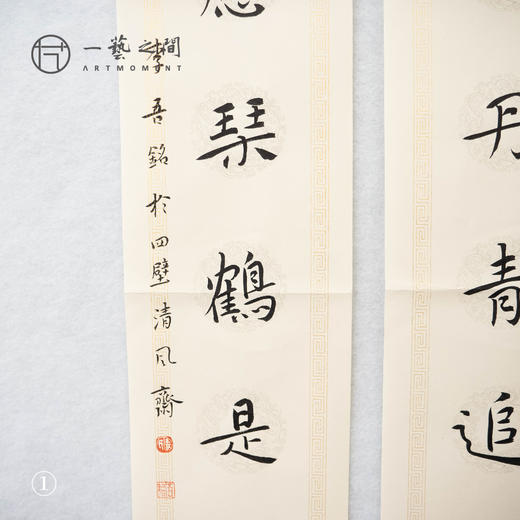 一藝之間
ARTMOMENT
丹青追
琹鶴是
李吾銘於四壁清風齋
1